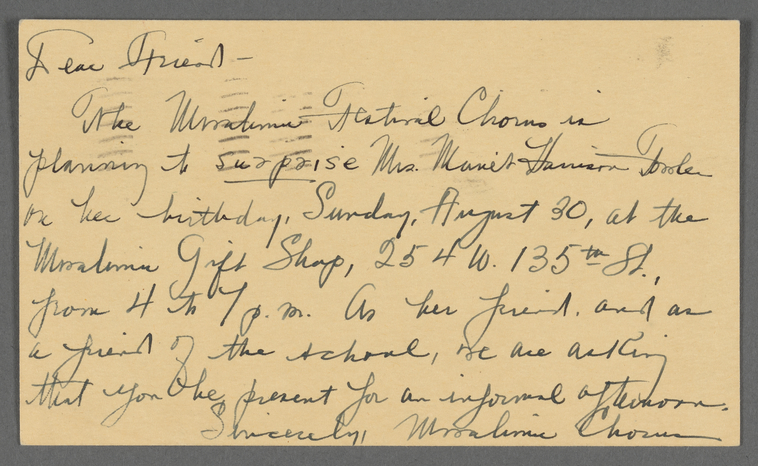 Dear Friend -
The Mwalimu Festival Chorus is
planning to surprise Mrs. Manet Harrison Fowler
on her birthday, Sunday, August 30, at the
Mwalimu Gift Shop, 254 W. 135th St.,
from 4 to 7 p.m. As her friend, and as
a friend of the school, we are asking
that you be present for an informal afternoon.
Sincerely, Mwalimu Chorus